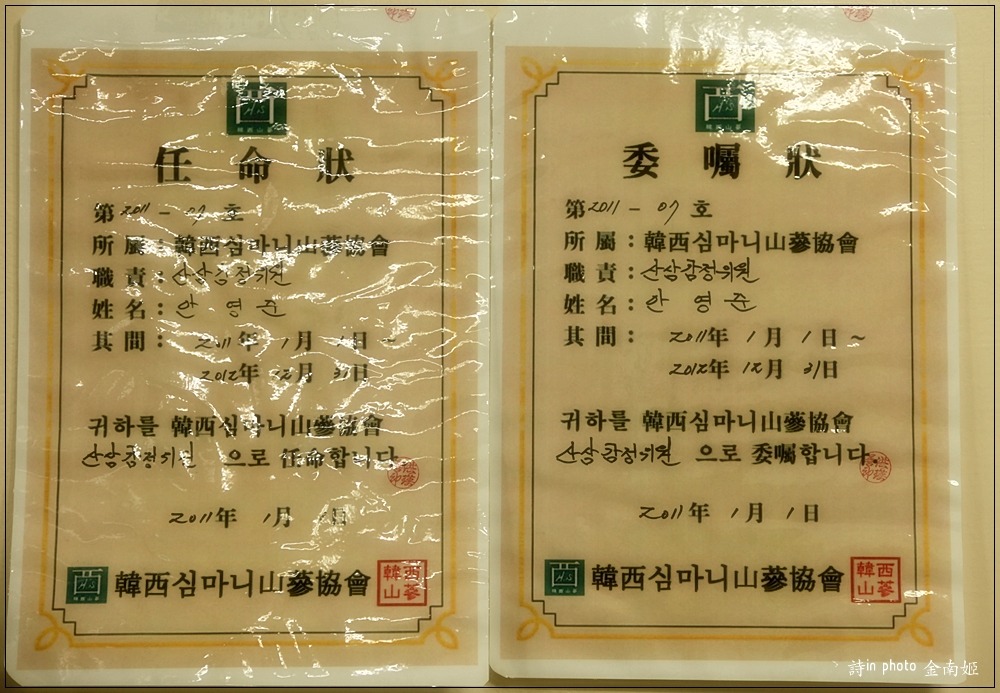 韓西山蔘
任命狀
第2011 - 07 호
所屬 : 韓西심마니山蔘協會
職責 : 산삼감정위원
姓名 : 안영준
其間 : 2011年 1月 1日 ~
2012年 12月 31日
귀하를 韓西심마니山蔘協會
산삼감정위원 으로 任命합니다.
2011年 1月 1日
韓西심마니山蔘協會
韓西山蔘
韓西山蔘
委囑狀
第2011 - 07 호
所屬 : 韓西심마니山蔘協會
職責 : 산삼감정위원
姓名 : 안영준
其間 : 2011年 1月 1日 ~
2012年 12月 31日
귀하를 韓西심마니山蔘協會
산삼감정위원 으로 委囑합니다.
2011年 1月 1日
韓西심마니山蔘協會
韓西山蔘
詩in photo 金南姬